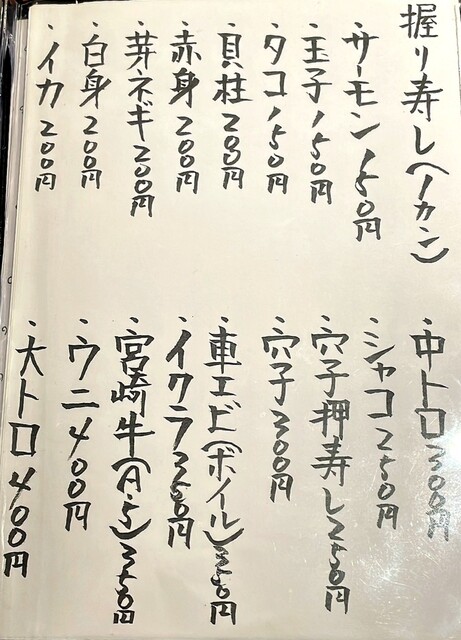 握り寿し(1カン)
・サーモン150円
・玉子150円
・タコ150円
・貝柱200円
・赤身200円
・芽ネギ200円
・白身200円
・イカ200円
・中トロ300円
・シャコ250円
・穴子押寿し250円
・穴子300円
・車エビ(ボイル)350円
・イクラ350円
・宮崎牛(A・5)350円
・ウニ400円
・大トロ400円